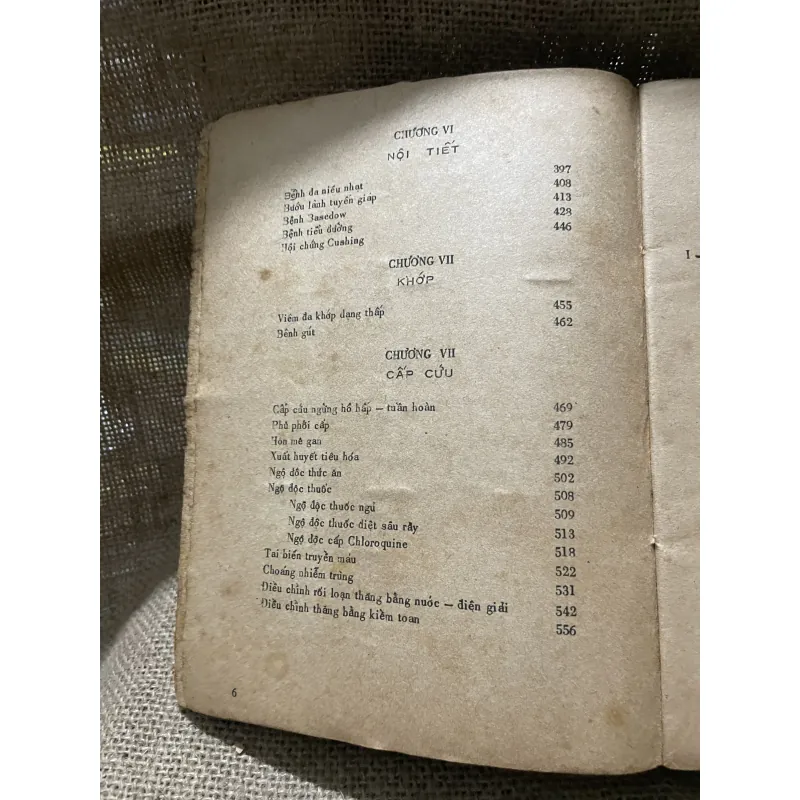 CHƯƠNG VI
NỘI TIẾT
Bệnh đa niếu nhạt 397
Bướu lành tuyến giáp 408
Bệnh Basedow 413
Bệnh tiểu đường 428
Hội chứng Cushing 446
CHƯƠNG VII
KHỚP
Viêm đa khớp dạng thấp 455
Bênh gút 462
CHƯƠNG VII
CẤP CỨU
Cấp cứu ngừng hô hấp — tuần hoàn 469
Phù phổi cấp 479
Hôn mê gan 485
Xuất huyết tiêu hóa 492
Ngộ độc thức ăn 502
Ngộ độc thuốc 508
Ngộ độc thuốc ngủ 509
Ngộ độc thuốc diệt sâu rầy 513
Ngộ độc cấp Chloroquine 518
Tai biến truyền máu 522
Choáng nhiễm trùng 531
Điều chỉnh rối loạn thăng bằng nước — điện giải 542
Điều chỉnh thăng bằng kiềm toan 556
6
I